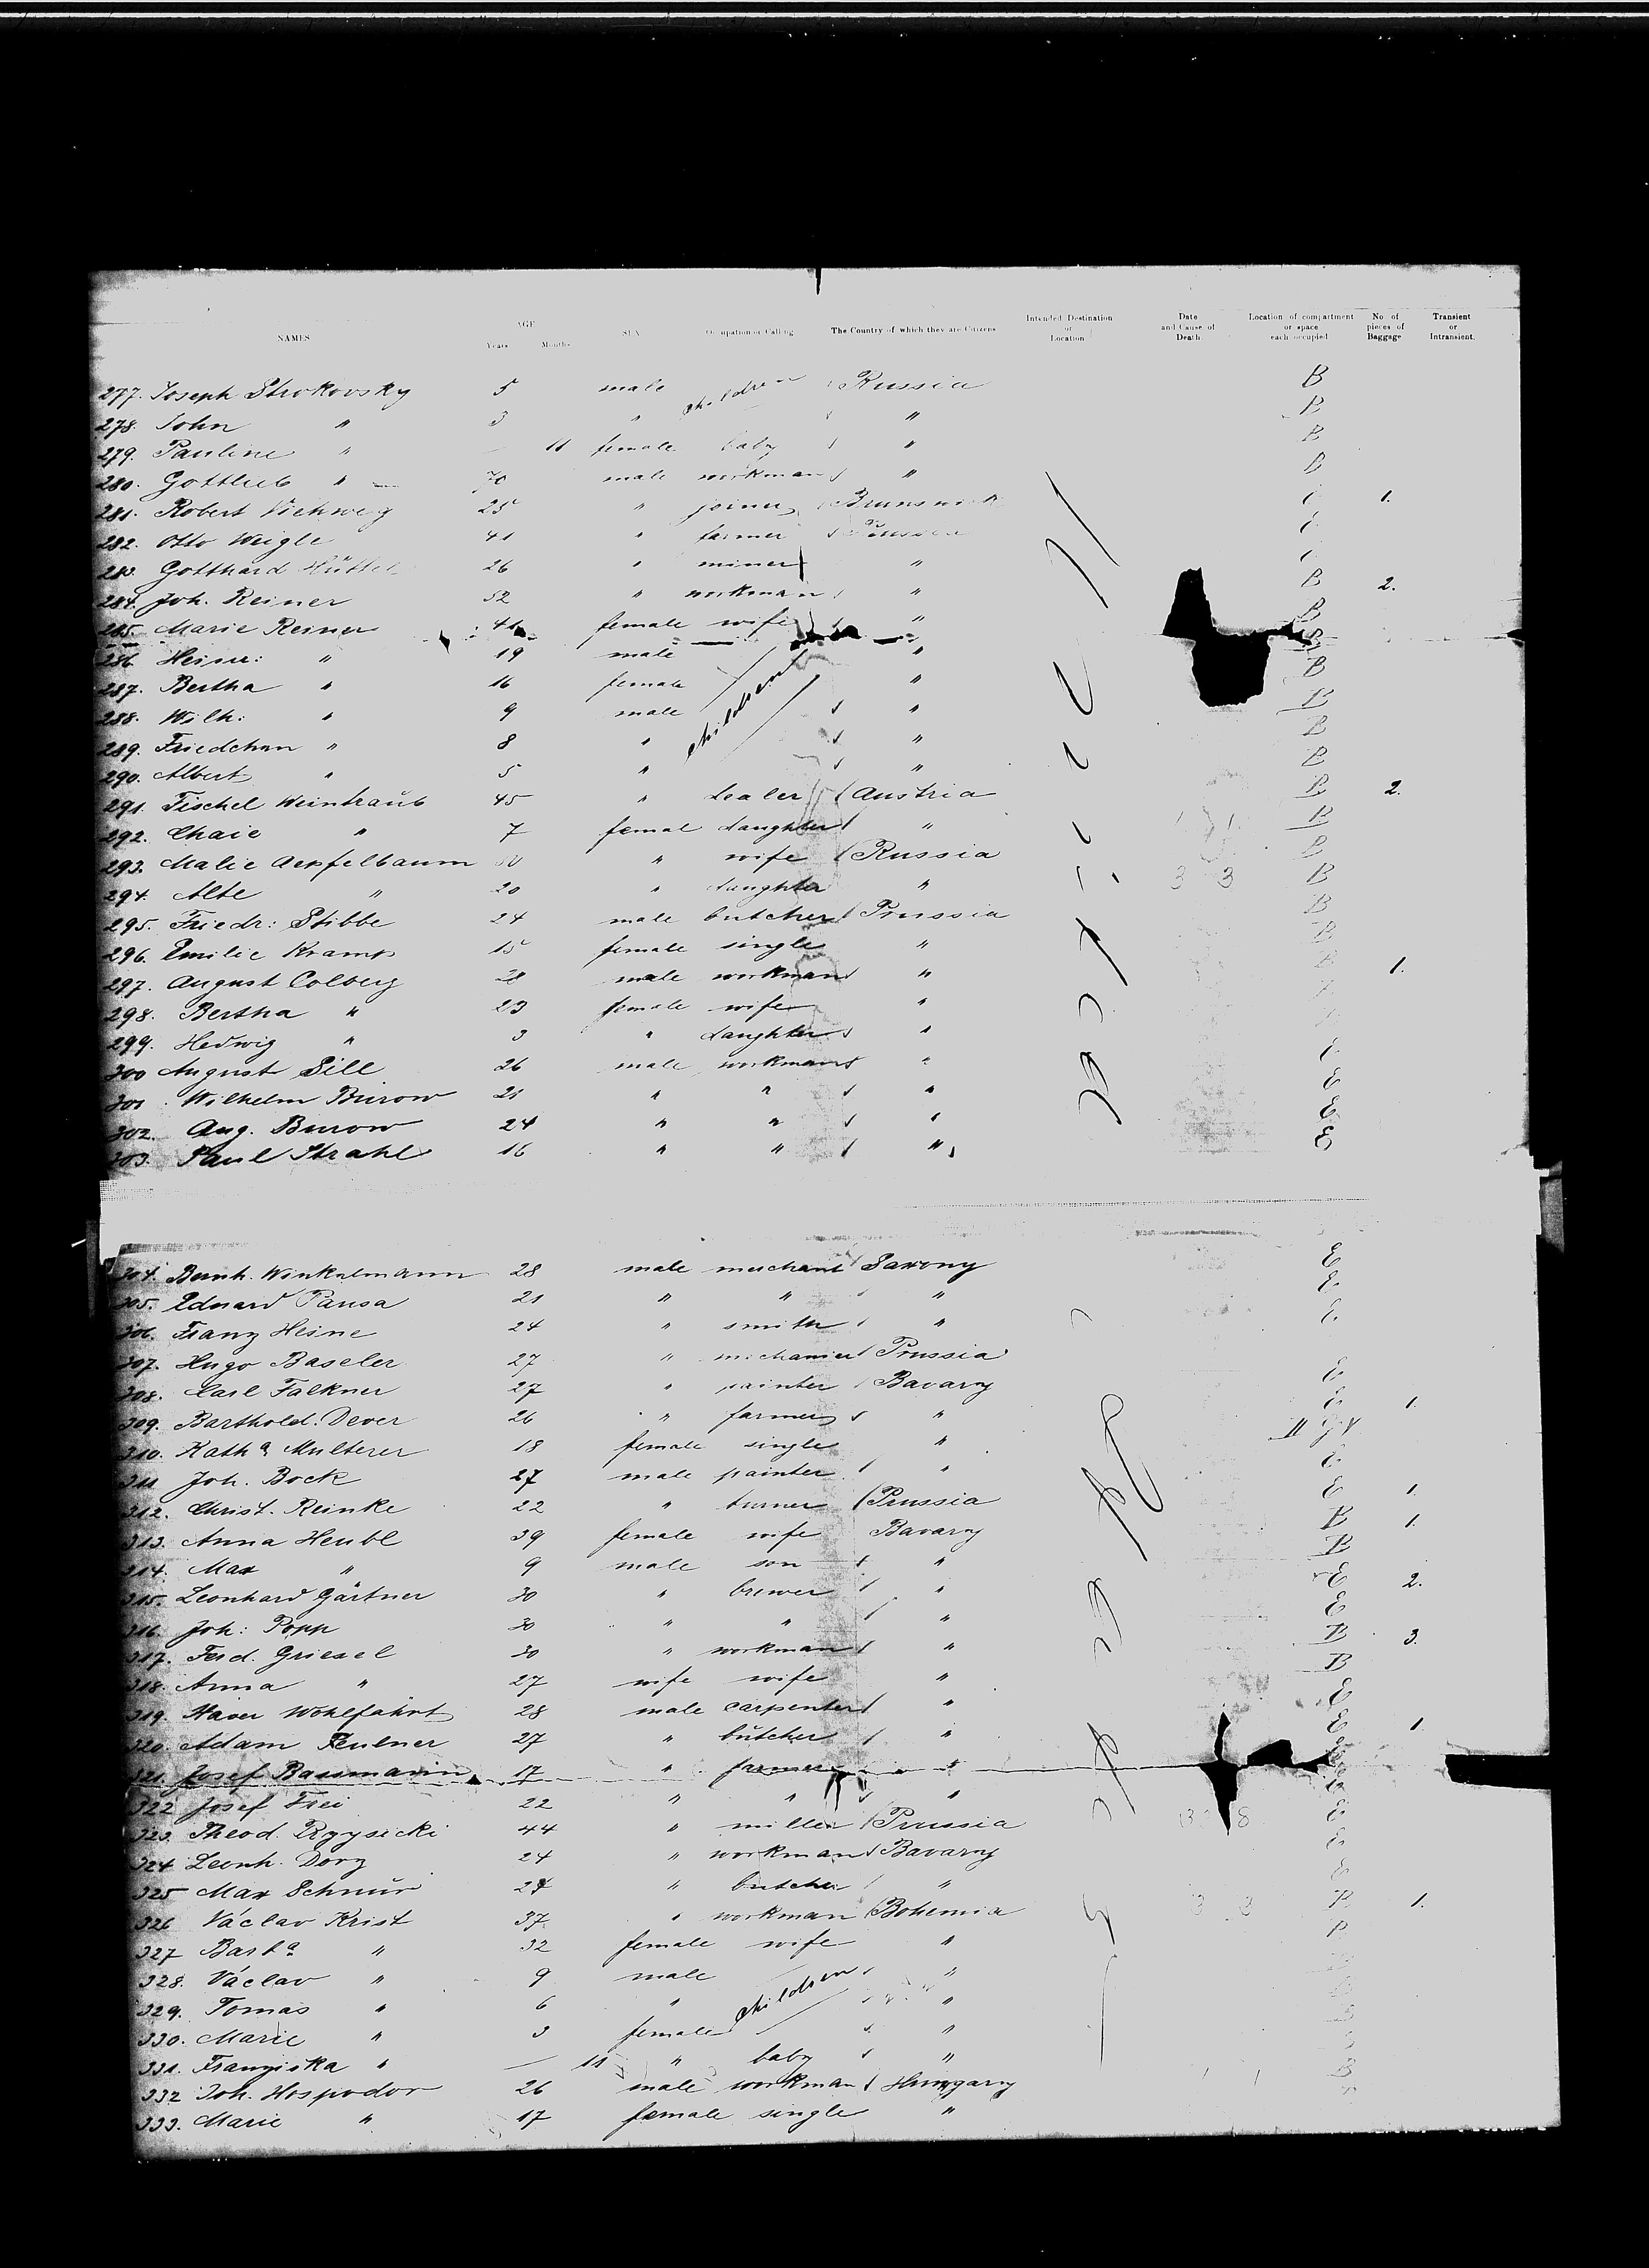 NAMES AGE Years Months SEX Occupation or Calling The Country of which they are Citizens Intended Destination or Location Date and Cause of Death Location of compartment or space each occupied No of pieces of Baggage Transient or Intransient.
277. Joseph Strokovsky 5 male children Russia B
278. John " 3 " " B
279. Pauline " — 11 female baby " B
280. Gottlieb " 70 male workman " B
281. Robert Viehweg 25 " joiner Brunswick 1.
282. Otto Weigle 41 " farmer Prussia
283. Gotthard Hüttel 26 " miner "
284. Joh. Reiner 52 " workman " B 2.
285. Marie Reiner female wife " B
286. Heinr: " 19 male " B
287. Bertha " 16 female children " B
288. Wilh: " 9 male " B
289. Friedchen " 8 " " B
290. Albert " 5 " " B
291. Fischel Weintraub 45 " dealer Austria B 2.
292. Chaie " 7 femal daughter " B
293. Malie Aepfelbaum wife Russia B
294. Alte " 20 " daughter " B
295. Friedr: Stibbe 24 male butcher Prussia B
296. Emilie Kramp 15 female single " B
297. August Colberg 28 male workman " B 1.
298. Bertha " 23 female wife "
299. Hedwig " 3 " daughter "
300 August Sill 26 male workman " E
301. Wilhelm Burow 21 " " " E
302. Aug. Burow 24 " " " E
303. Paul Strahl 16 " " " E
304. Bernh. Winkelmann 28 male merchant Saxony E
305. Eduard Pausa 21 " " " E
306. Franz Heine 24 " smith " E.
307. Hugo Baseler 27 " Prussia
308. Carl Falkner 27 " painter Bavary E
309. Barthold. Dever 26 " farmer " E 1.
310. Katha Multerer 18 female single "
311 Joh. Bock 27 male painter " E
312. Christ. Reinke 22 " turner Prussia E 1.
313. Anna Heubl 39 female wife Bavary B 1.
314. Max " 9 male son " B
315. Leonhard Gärtner 30 " brewer " E 2.
316. Joh: Popp 30 " " " E
317. Ferd. Griesel 30 " workman " B 3.
318. Anna " 27 wife wife " B
319. Xaver Wohlfahrt 28 male carpenter " E
320. Adam 27 " butcher " E 1.
321. Josef Baumann 17 " farmer "
322 Josef Frei 22 " " "
323. Theod. 44 " miller Prussia E
324 Leonh. Dorz 24 " workman Bavary E
325 Max Schnür 24 " butcher " E
326 Václav Krist 37 " workman Bohemia B 1.
327 Barba " 32 female wife " B
328. Václav " 9 male children "
329. Tomas " 6 " "
330. Marie " 3 female "
331. Franziska " — 11 " baby "
332 Joh. Hospodor 26 male workman Hungary B
333. Marie " 17 female single "